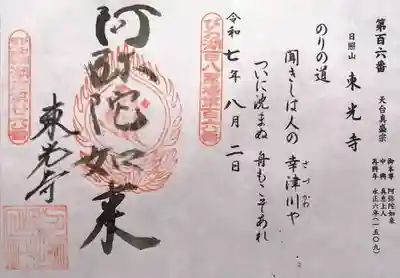 第百六番
天台真盛宗
日照山 東光寺
御本尊 阿弥陀如来
中興 真恵上人
再興年 永正六年(一五〇九)
のりの道
聞きしは人の 幸津川や
さづかわ
ついに沈まぬ 舟もこそあれ
令和七年八月二日
阿弥陀如来
東光寺